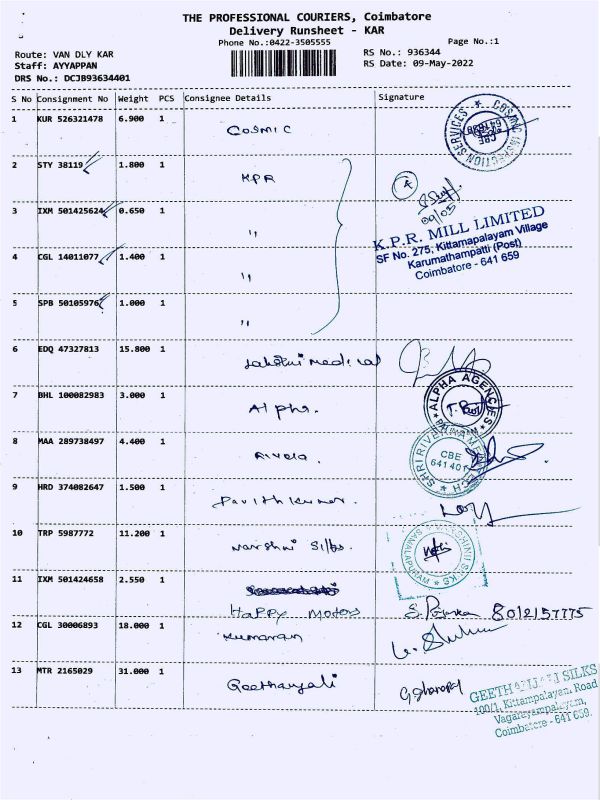 THE PROFESSIONAL COURIERS, Coimbatore
Delivery Runsheet - KAR
Phone No.:0422-3505555
Page No.:1
Route: VAN DLY KAR
RS No.: 936344
Staff: AYYAPPAN
RS Date: 09-May-2022
DRS No.: DCJB93634401
S No Consignment No Weight PCS Consignee Details Signature
1 KUR 526321478 6.900 1 COSMIC
COSMIC INSPECTION SERVICES CBE
2 STY 38119 1.800 1 KPR
4
09/05
3 IXM 501425624 0.650 1 "
K.P.R. MILL LIMITED
SF No. 275, Kittampalayam Village
Karumathampatti (Post)
Coimbatore - 641 659
4 CGL 14011077 1.400 1 "
5 SPB 50105976 1.000 1 "
6 EDQ 47327813 15.800 1 Lakshmi medical
7 BHL 100082983 3.000 1 Alpha.
ALPHA AGENCIES
8 MAA 289738497 4.400 1
CBE
641 401
9 HRD 374082647 1.500 1 Pavithkumar.
10 TRP 5987772 11.200 1 Varshni Silks.
SAMALAPURAM
11 IXM 501424658 2.550 1
HAPPY Motors 8012157775
12 CGL 30006893 18.000 1 Kumaran
13 MTR 2165029 31.000 1 Geethanjali
GEETHANJALI SILKS
100/1, Kittampalayan. Road
Vagarayampalayam,
Coimbatore - 641 659.